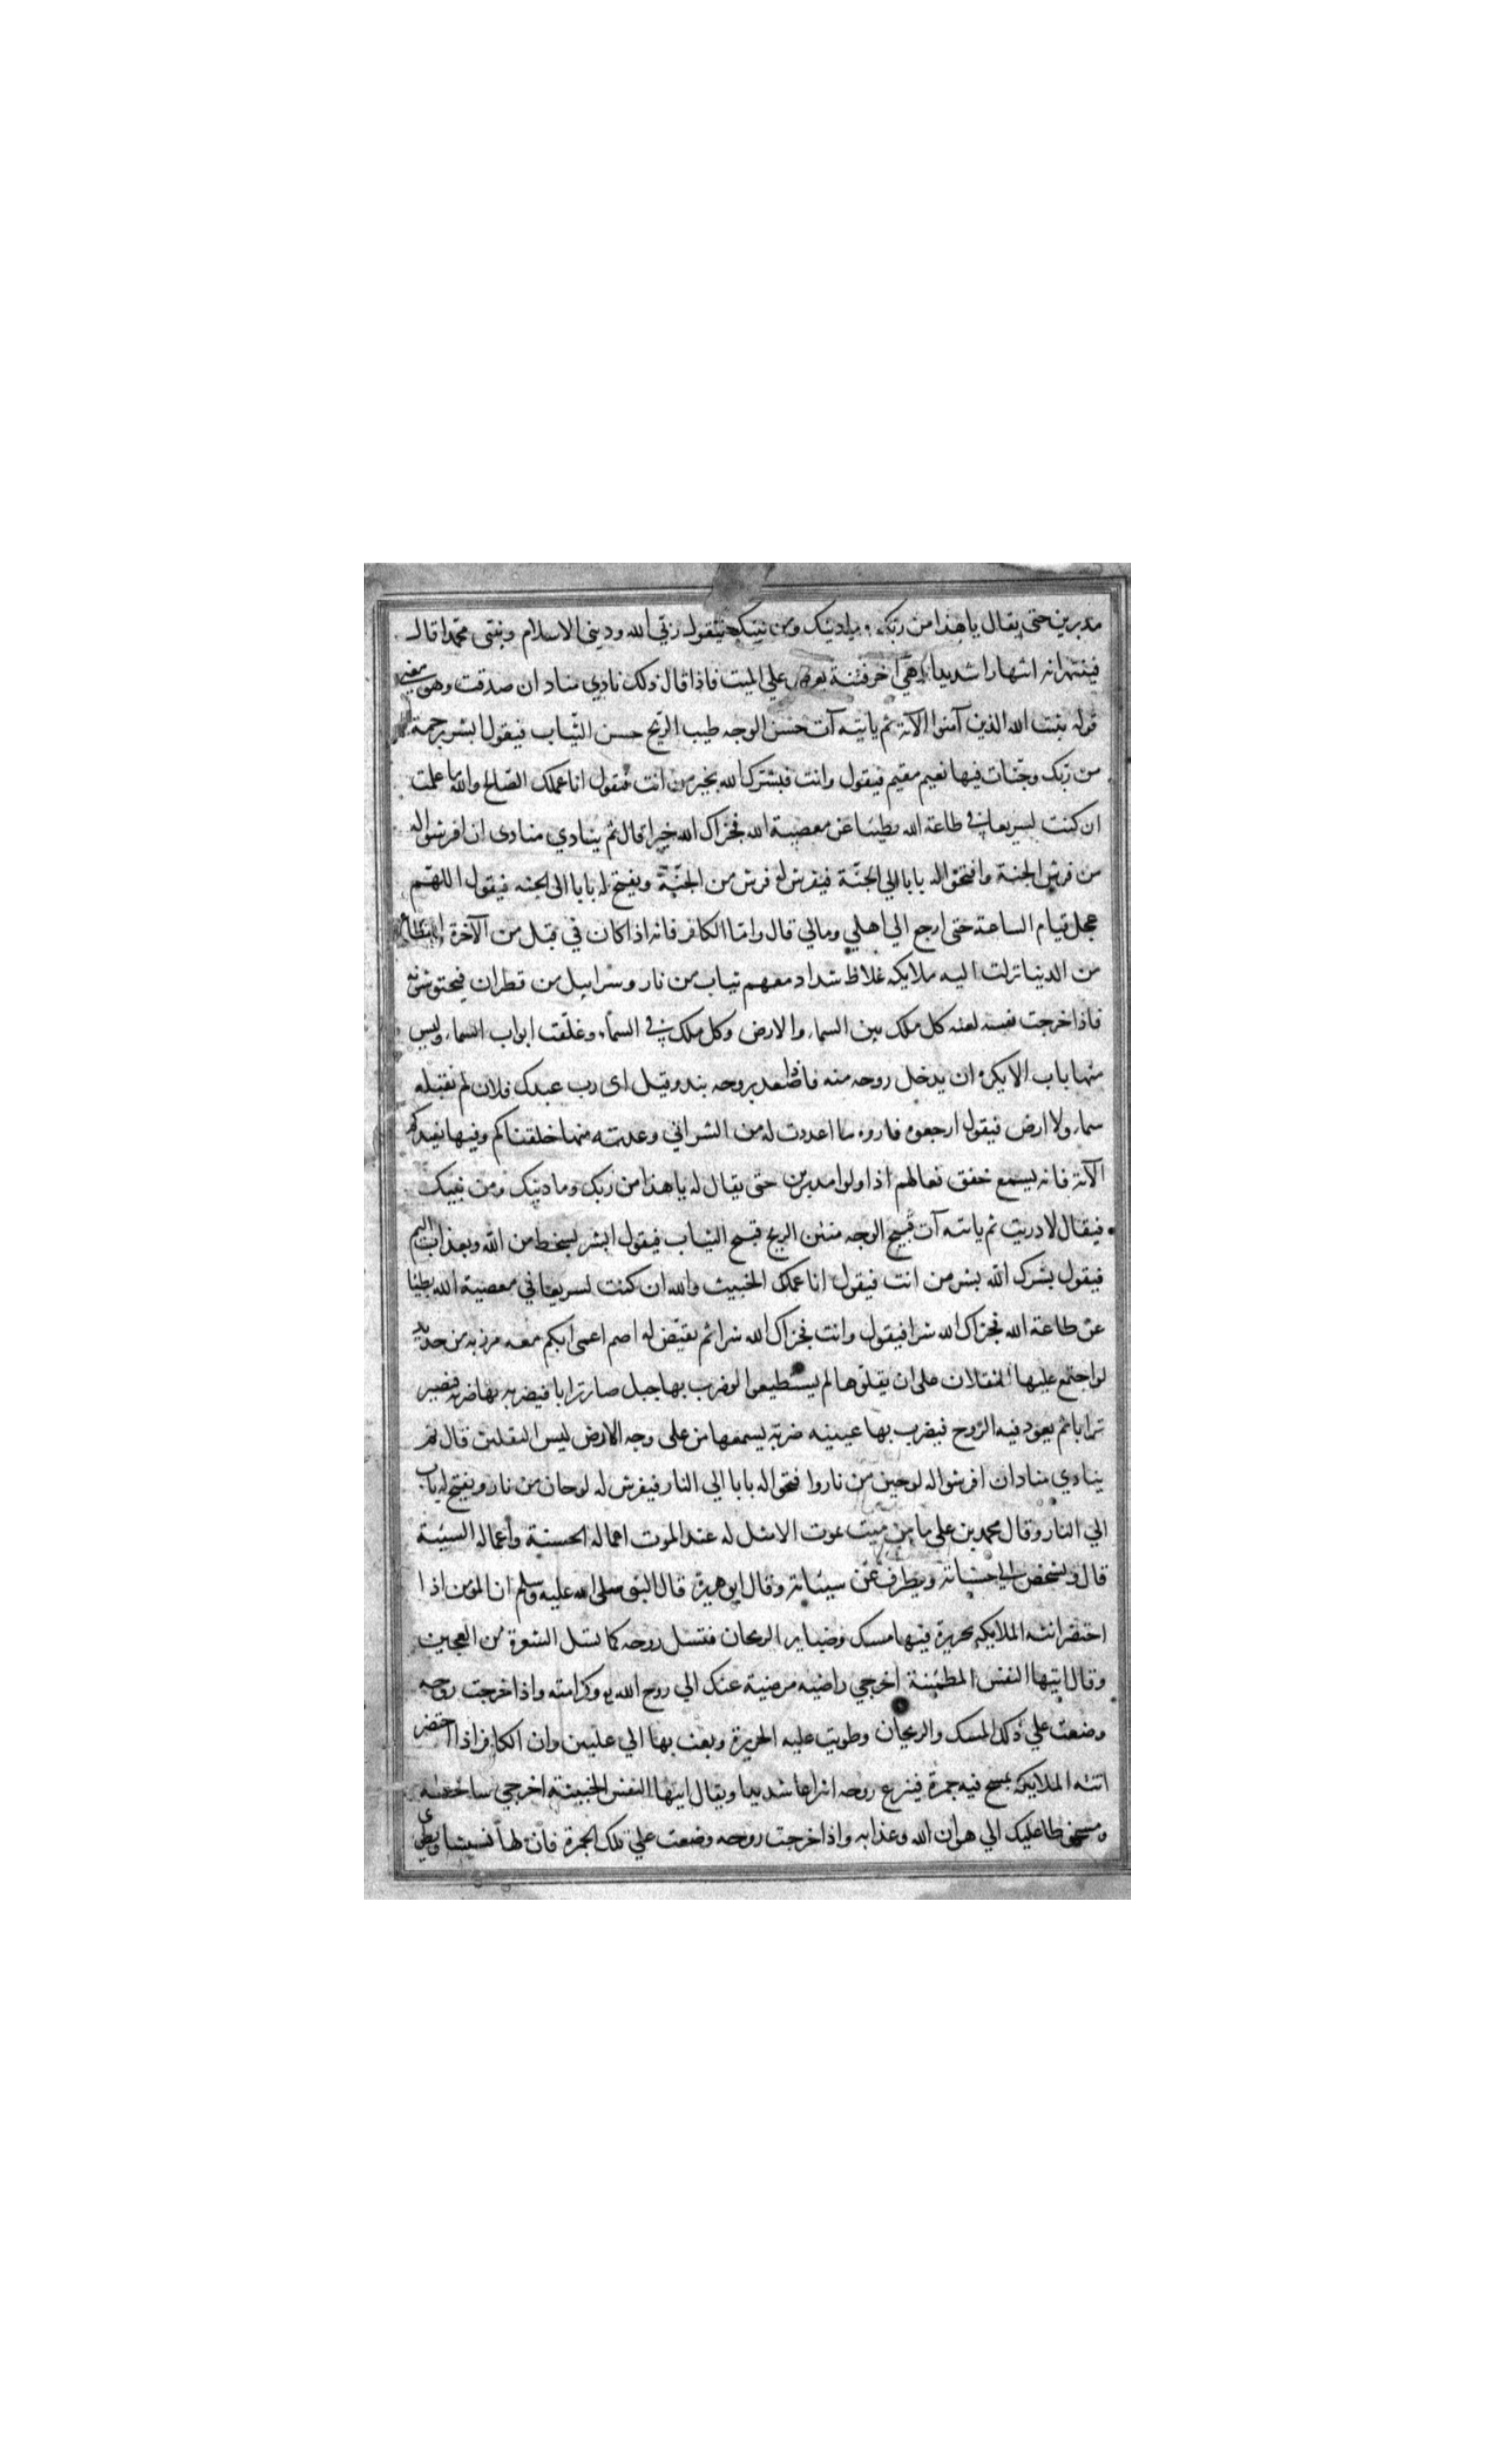 مدبرين حتى يقال يا هذا من ربك وما دينك ومن نبيك فيقول ربي الله وديني الاسلام ونبيي محمد اقال
فينتهرانه انتهارا شديدا وهي آخر فتنة يعرض علي الميت فاذا قال ذلك نادي مناد ان صدقت وهي معني
قوله يثبت الله الذين آمنوا الآية ثم ياتيه آت حسن الوجه طيب الريح حسن الثياب فيقول ابشر برحمة
من ربك وجنات فيها نعيم مقيم فيقول وانت فبشرك الله بخير من انت فيقول انا عملك الصالح والله ما علمت
ان كنت لسريعا في طاعة الله بطيئا عن معصية الله فجزاك الله خيرا قال ثم ينادي منادى ان افرشوا له
من فرش الجنة وافتحوا له بابا الي الجنة فيفرش له فرش من الجنة ويفتح له بابا الى الجنه فيقول اللهم
عجل قيام الساعة حتى ارجع الي اهلي ومالي قال واما الكافر فانه اذا كان في قبل من الآخرة وانقطاع
من الدنيا نزلت اليه ملايكه غلاظ شداد معهم ثياب من نار وسرابيل من قطران فيحتوشونه
فاذا خرجت نفسه لعنه كل ملك بين السماء والارض وكل ملك في السماء وغلقت ابواب السماء وليس
منها باب الا يكره ان يدخل روحه منه فاذا صعد بروحه نبذ وقيل اى رب عبدك فلان لم تقبله
سماء ولا ارض فيقول ارجعوه فاروه ما اعددت له من الشر اني وعدته منها خلقناكم وفيها نعيدكم
الآية فانه ليسمع خفق نعالهم اذا ولوا مدبرين حتى يقال له يا هذا من ربك وما دينك ومن نبيك
فيقال لا دريت ثم ياتيه آت قبيح الوجه منتن الريح قبيح الثياب فيقول ابشر بسخط من الله وبعذاب اليم
فيقول بشرك الله بشر من انت فيقول انا عملك الخبيث والله ان كنت لسريعا في معصية الله بطيئا
عن طاعة الله فجزاك الله شرا فيقول وانت فجزاك الله شرا ثم يقيض له اصم اعمى ابكم معه مرزبه من حديد
لو اجتمع عليها الثقلان على ان يقلوها لم يستطيعوا لو ضرب بها جبل صار ترابا فيضربه بها ضربه فيصير
ترابا ثم يعود فيه الروح فيضرب بها عينيه ضربة يسمعها من على وجه الارض ليس الثقلين قال ثم
ينادي مناد ان افرشوا له لوحين من نار وافتحوا له بابا الي النار فيفرش له لوحان من نار ويفتح له باب
الي النار وقال محمد بن علي ما من ميت يموت الا مثل له عند الموت اعماله الحسنة واعماله السيئة
قال ويشخص الي حسناته ويطرف عن سيئاته وقال ابو هريرة قال النبي صلى الله عليه وسلم ان المؤمن اذا
احتضر اتته الملايكه بحريرة فيها مسك وضباير الريحان فتسل روحه كما تسل الشعرة من العجين
وقال ايتها النفس المطمئنة اخرجي راضيه مرضية عنك الي روح الله وكرامته واذا خرجت روحه
وضعت علي ذلك المسك والريحان وطويت عليه الحريرة وبعث بها الي عليين وان الكافر اذا احتضر
اتته الملايكه بمسح فيه جمرة فينزع روحه انتزاعا شديدا ويقال ايتها النفس الخبيثة اخرجي ساخطه
ومسخوطا عليك الي هوان الله وعذابه واذا خرجت روحه وضعت علي تلك الجمرة فان لها نشيشا ويطوى